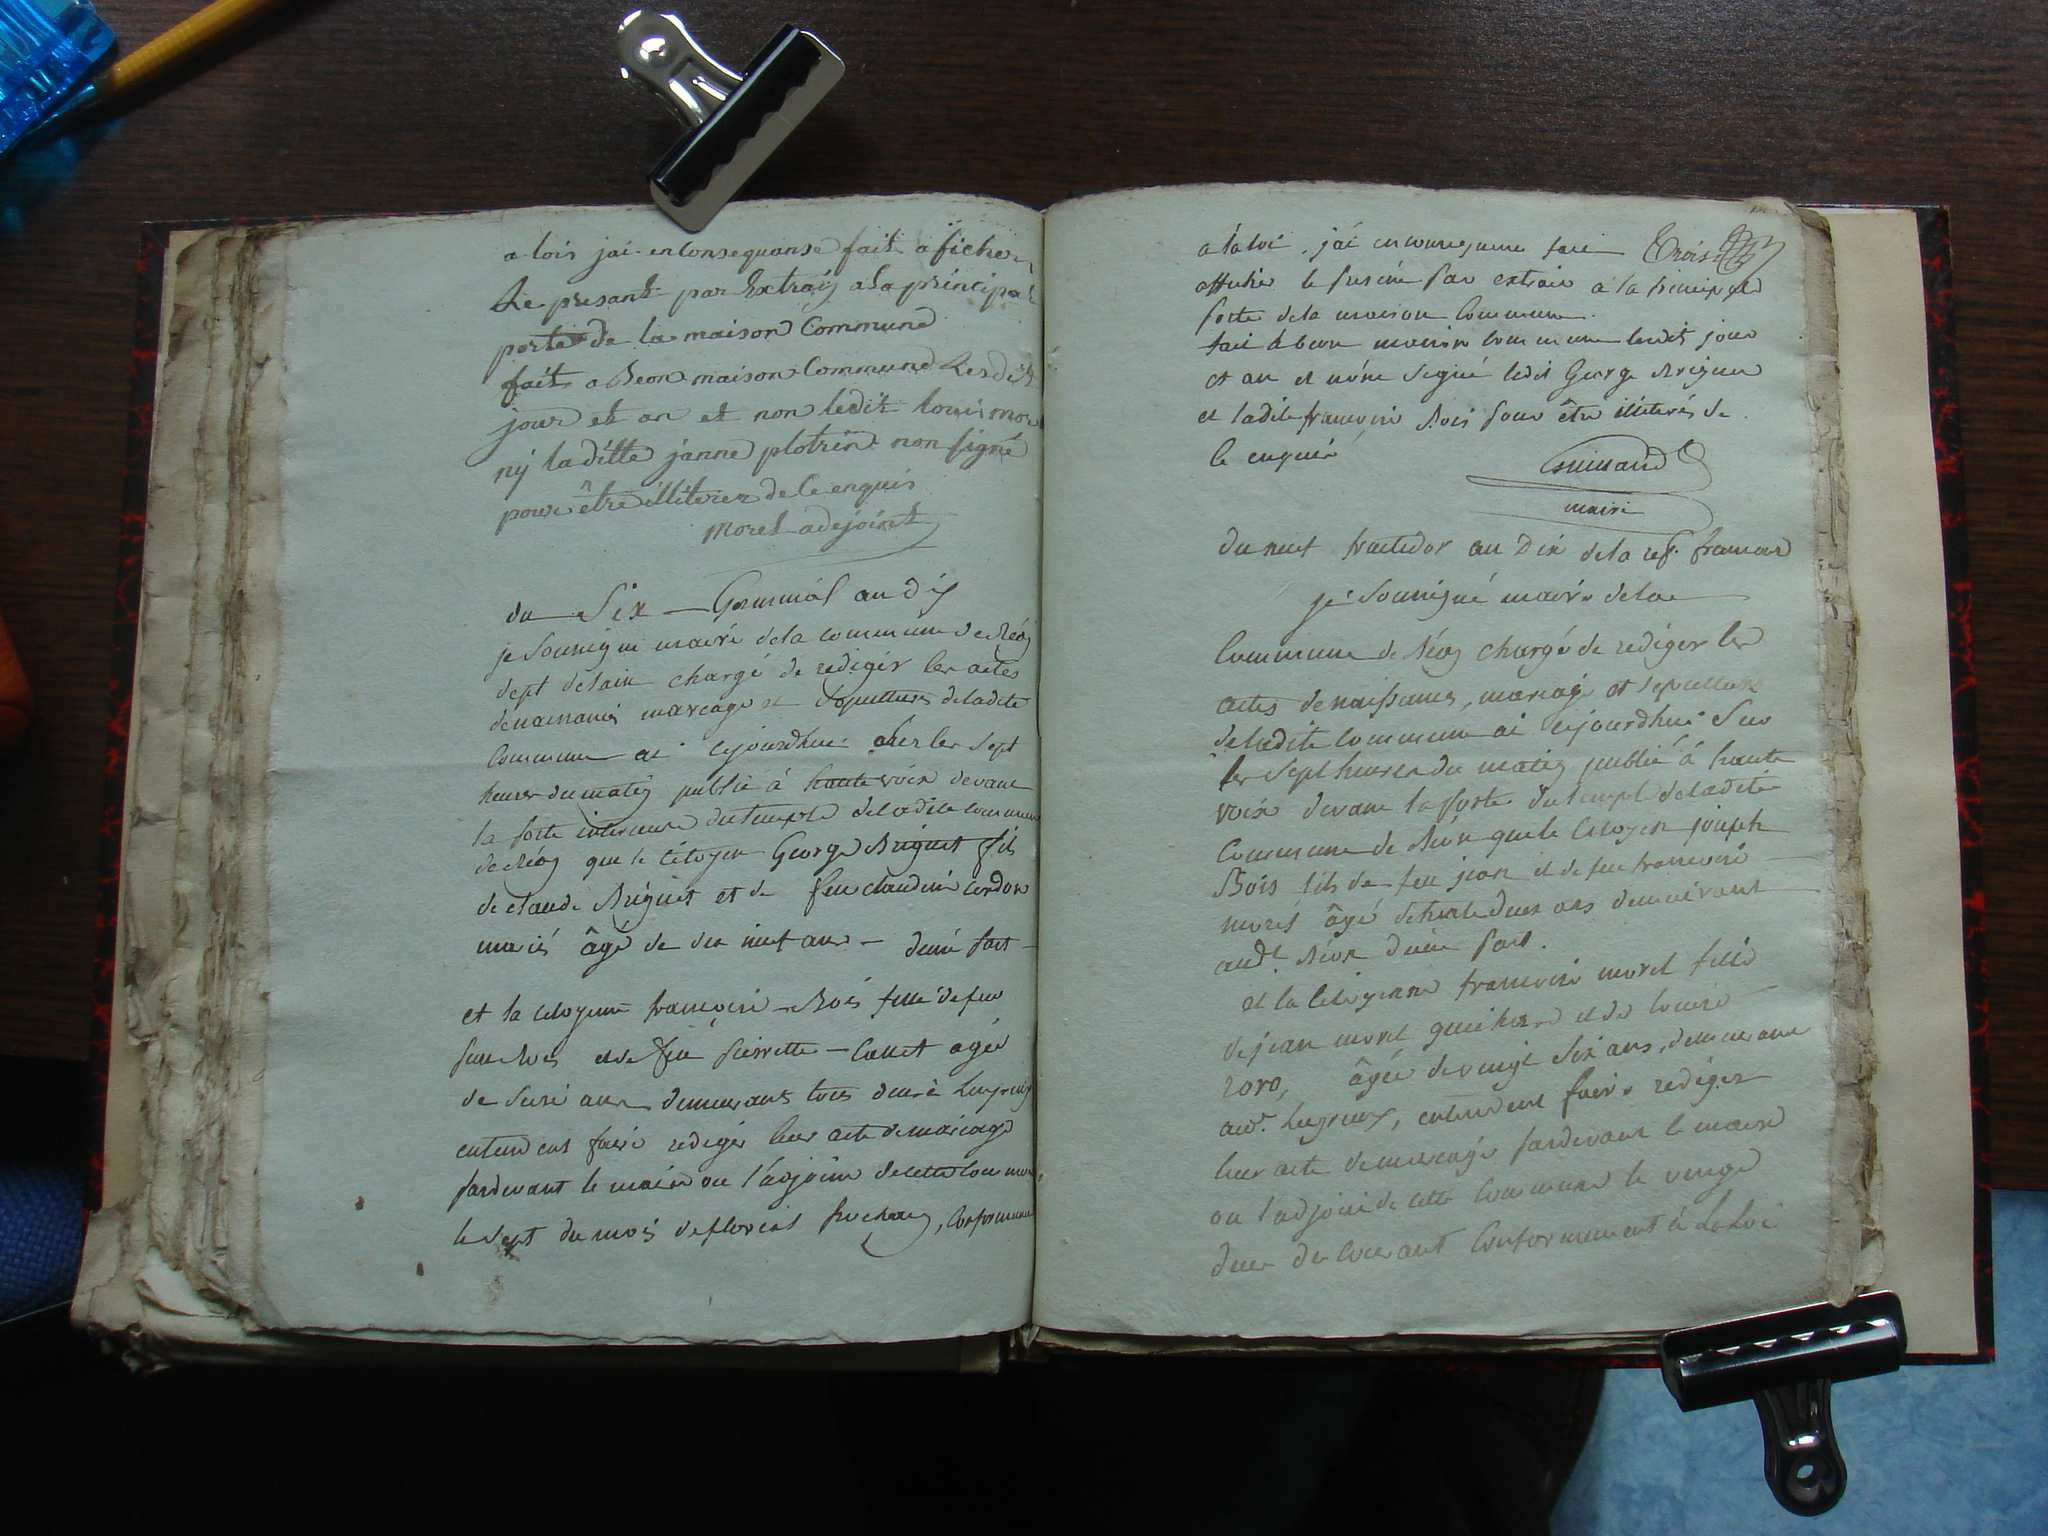 a lois jai en Consequanse fait afiche
Le presant par Extrait a la principal
porte de la maison Commune
fait a Beon maison Commune Lesdit
jour et an et non ledit louis mor
ny laditte janne plotrin non signé
pour être illiterez de le enquis
Morel adejoint
du Six Germinal an dix
je soussigné maire de la commune de Béon
dept de l'ain chargé de redigér les actes
de naissances mariage et sepultures de ladite
Commune ai cejourdhui les sept
heures du matin publié à haute voix devant
la porte interieure du temple de ladite commune
de Béon que le Citoyen George Briguet fils
de claude Briguet et de feu claudine Cordon
mariés âgé de dix neuf ans d'une part
et la citoyenne francoise Bois fille de feu
Bois et de feue pierrette Collet agée
de seize ans demeurants tous deux à Luyrieux
entendent faire redigér leur acte de mariage
pardevant le maire ou l'adjoint de cette commune
le sept du mois de floreal prochain, Conformement
a la loi, j'ai en consequence fait Trois
afficher le présent par extrait a la principale
porte de la maison Commune.
fait à béon maison Commune lesdit jour
et an et n'ont signé ledit George Briguet
et ladite francoise Bois pour être illiterés de
ce enquis
maire
du neuf fructidor an Dix de la rep. francaise
je soussigné maire de la
Commune de Béon chargé de rediger les
actes de naissances, mariage et sepulture
de ladite commune ai cejourdhui sur
les sept heures du matin publié à haute
voix devant la porte du temple de ladite
Commune de Béon que le Citoyen joseph
Bois fils de feu jean et de feue francoise
morel âgé de trente deux ans demeurant
audt. Béon d'une part.
et la Citoyenne francoise morel fille
de jean morel et de louise
âgée de vingt six ans, demeurant
au Luyrieux, entendent faire rediger
leur acte de mariage pardevant le maire
ou l'adjoint de cette Commune le vingt
deux du Courant Conformement à La Loi